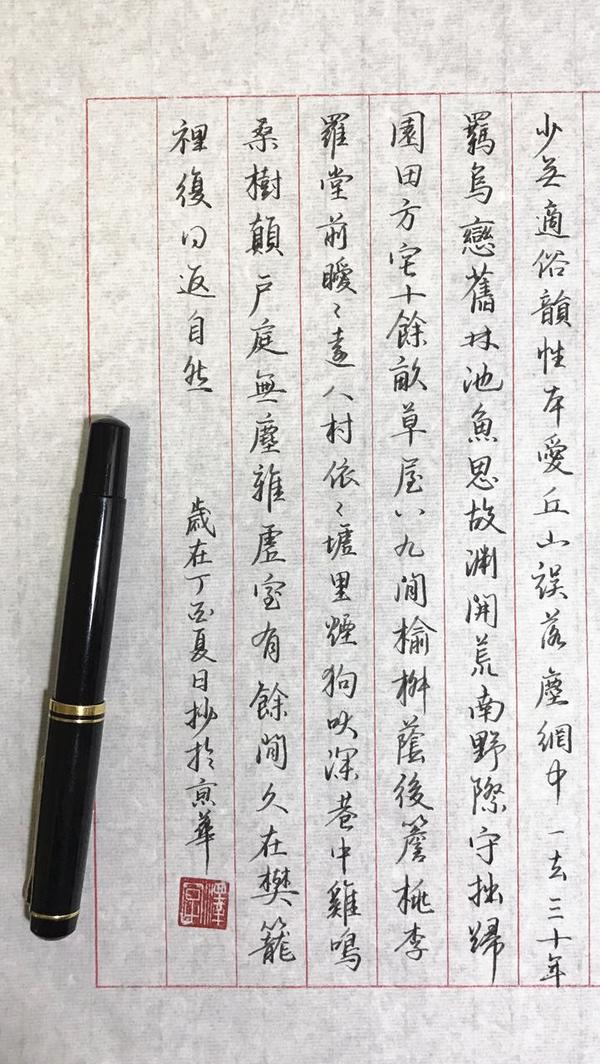 少无適俗韻性本愛丘山誤落塵網中一去三十年
羈鳥戀舊林池魚思故淵開荒南野際守拙歸
園田方宅十餘畝草屋八九間榆柳蔭後簷桃李
羅堂前曖〻遠人村依〻墟里煙狗吠深巷中雞鳴
桑樹顛戶庭無塵雜虛室有餘閒久在樊籠
裡復得返自然
歲在丁酉夏日抄於京華